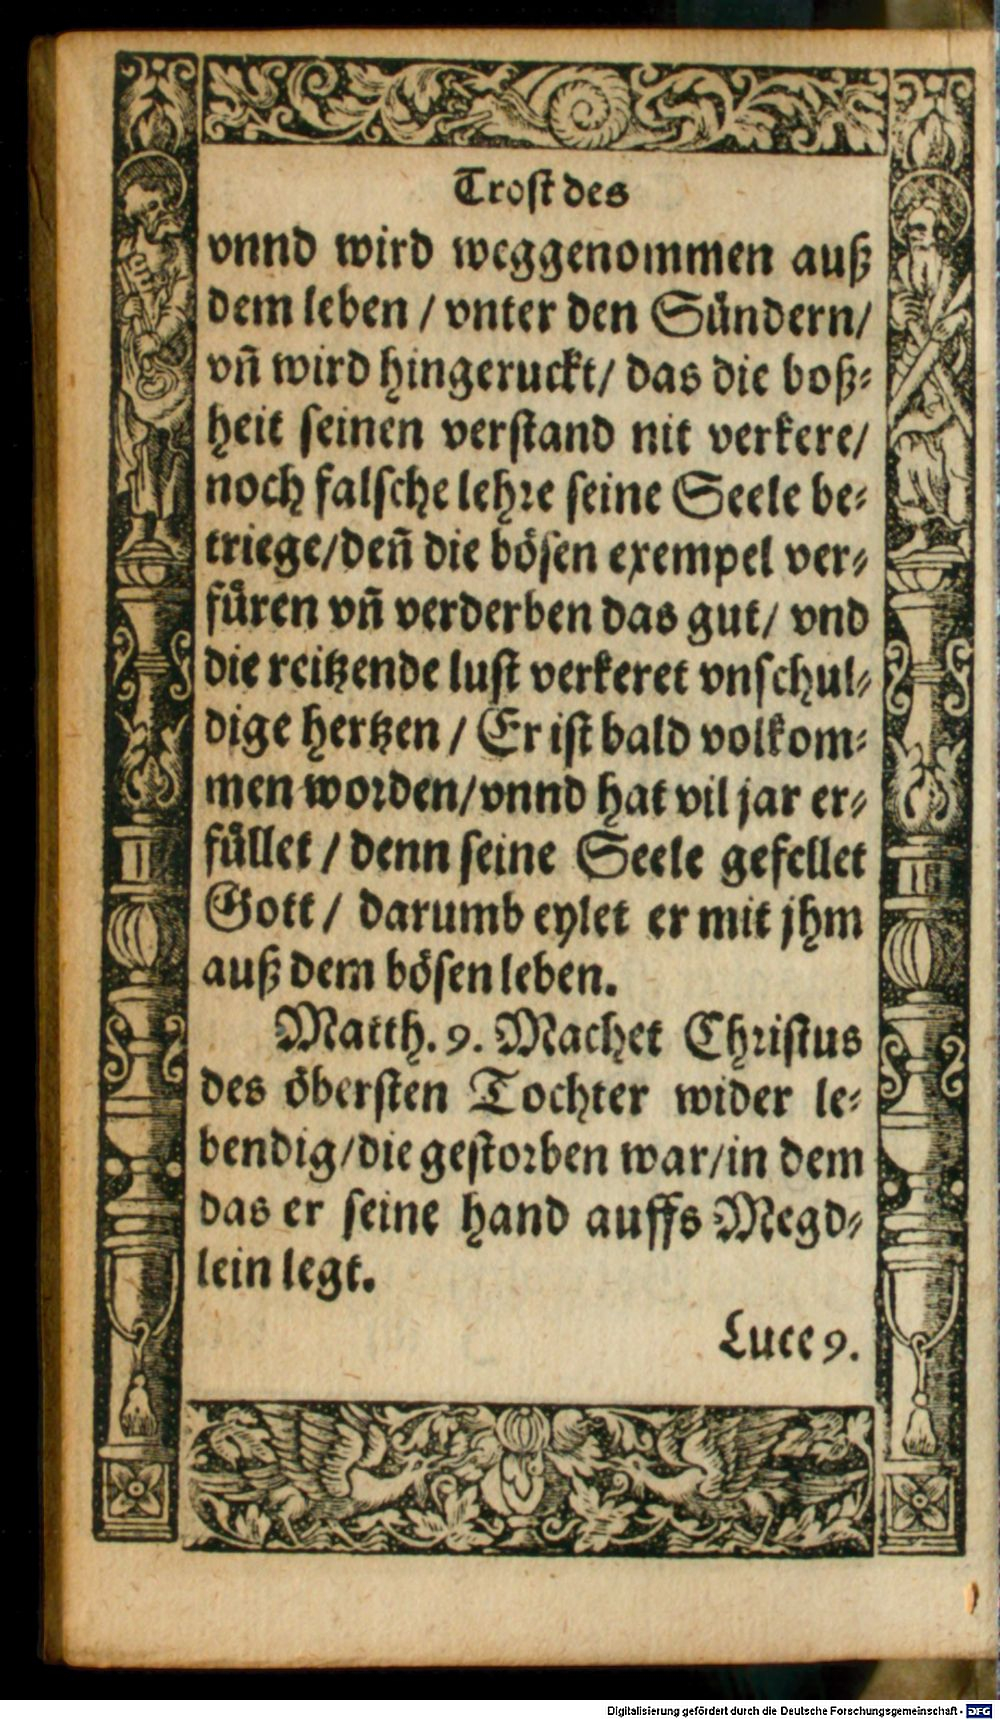 Trost des
vnnd wird weggenommen auß
dem leben / vnter den Sündern/
vñ wird hingeruckt/ das die boß⸗
heit seinen verstand nit verkere/
noch falsche lehre seine Seele be⸗
triege/deñ die bösen exempel ver⸗
füren vñ verderben das gut/ vnd
die reitzende lust verkeret vnschul⸗
dige hertzen / Er ist bald volkom⸗
men worden/vnnd hat vil jar er⸗
füllet / denn seine Seele gefellet
Gott / darumb eylet er mit jhm
auß dem bösen leben.
Matth. 9. Machet Christus
des öbersten Tochter wider le⸗
bendig/die gestorben war/in dem
das er seine hand auffs Megd⸗
lein legt.
Luce 9.
Digitalisierung gefördert durch die Deutsche Forschungsgemeinschaft - DFG